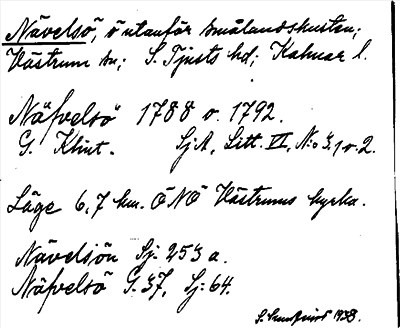 Nävelsö, ö utanför Smålandskusten;
Västrum sn; S. Tjusts hd; Kalmar l.
Näfvelsö 1788 o. 1792.
G. Klint. SjA, Litt. VI, N:o 3, 1 o. 2.
Läge 6,7 km. ÖNÖ Västrums kyrka.
Nävelsön Sj. 253 a.
Näfvelsö G. 37, Sj: 64.
S. 1938.